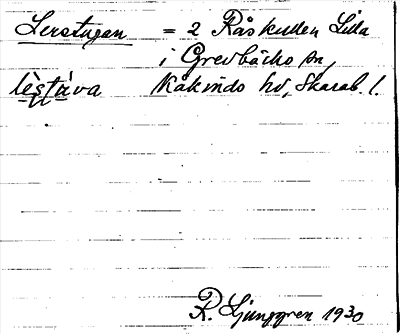 Lerstugan = 2 Råskullen Lilla
i Grevbäcks sn,
lèstùva Kåkinds hd, Skarab. l.
R. Ljunggren 1930